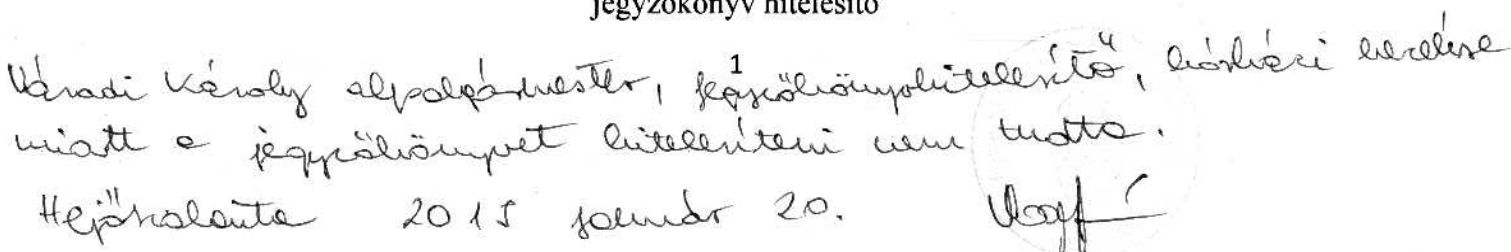 jegyzőkönyv hitelesítő
Váradi Károly alpolgármester, jegyzőkönyvhitelesítő, kórházi kezelése
1
miatt a jegyzőkönyvet hitelesíteni nem tudta.
Hejőszalonta 2015 január 20.